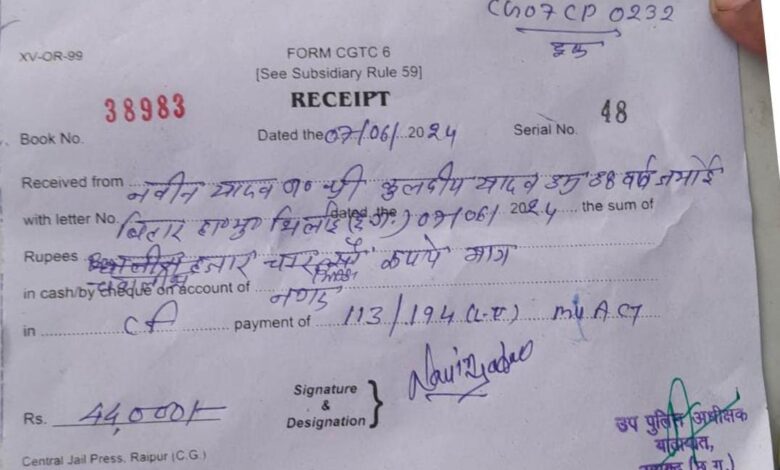 CG07 CP 0232
ट्रक
XV-OR-99
FORM CGTC 6
[See Subsidiary Rule 59]
RECEIPT
Book No. 38983 Dated the 07/06/2024 Serial No. 48
Received from नवीन यादव पि० श्री कुलदीप यादव उम्र 38 वर्ष
with letter No. बिहार हा०मु० भिलाई (छ.ग.) dated the 07/06/ 2024 the sum of
Rupees हजार रूपये मात्र
in cash/by cheque on account of नगद
in payment of 113/194 (1-ए) mv ACT
Signature
&
Designation
Navin Yadav
Rs. 44,000/-
उप पुलिस अधीक्षक
यातायात,
Central Jail Press, Raipur (C.G.)